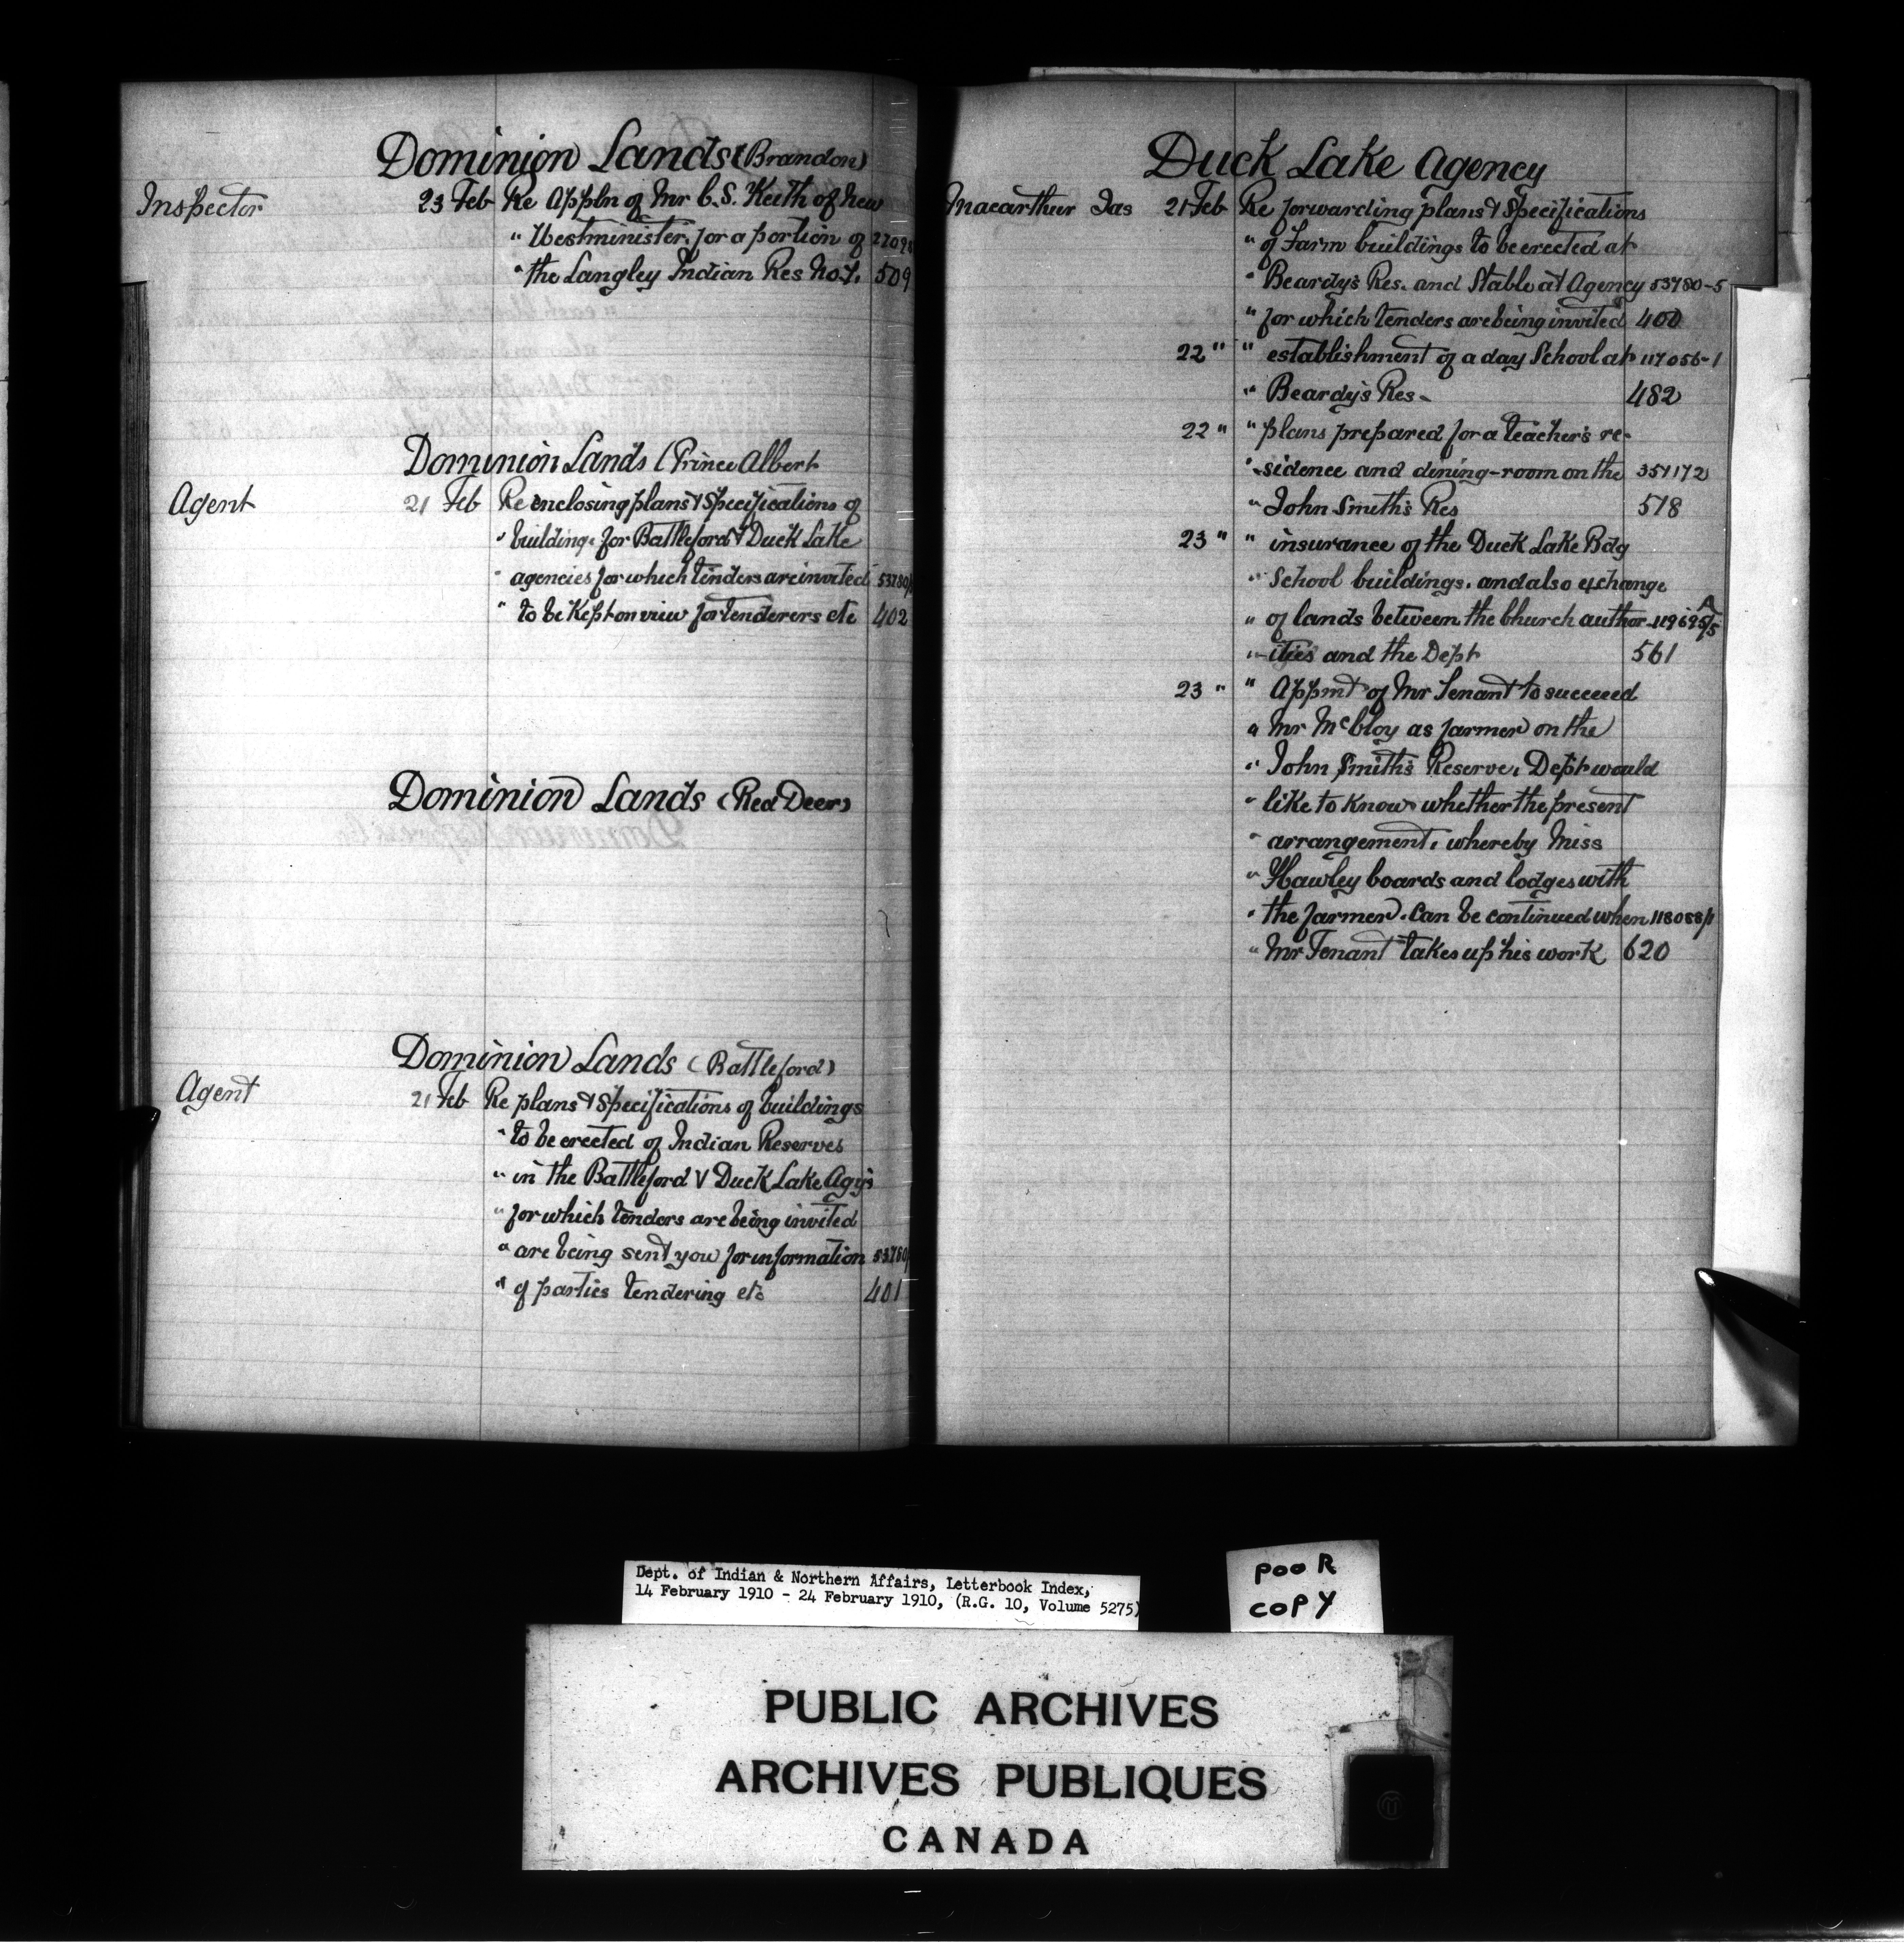 Dominion Lands (Brandon)
Inspector 23 Feb Re Appln of Mr C. S. Keith of New
" Westminister. for a portion of
" the Langley Indian Res No. 7. 509
Dominion Lands (Prince Albert
Agent 21 Feb Re enclosing plans & Specifications of
" building. for Battleford & Duck Lake
" agencies for which tenders are invited 53780/
" to be Kept on view for tenderers etc 402
Dominion Lands (Red Deer)
Dominion Lands (Battleford)
Agent 21 Feb Re plans & Specifications of buildings
" to be erected of Indian Reserves
" in the Battleford & Duck Lake Agys
" for which tenders are being invited
" are being sent you for information 53780/
" of parties tendering etc 401
Duck Lake Agency
Macarthur Jas 21 Feb Re forwarding plans & Specifications
" of Farm buildings to be erected at
" Beardy's Res. and Stable at Agency 53780-5
" for which tenders are being invited 400
22 " " establishment of a day School at 117056-1
" Beardy's Res- 482
22 " " plans prepared for a teacher's re-
" -sidence and dining-room on the 351172
" John Smith's Res 518
23 " " insurance of the Duck Lake Bdg
" School buildings. and also exchange
" of lands between the Church author- 119695/5 A
" -ities and the Dept 561
23 " " Appmt of Mr Tenant to succeed
" Mr McCloy as farmer on the
" John Smith's Reserve. Dept would
" like to know whether the present
" arrangement, whereby Miss
" Hawley boards and lodges with
" the farmer. Can be continued when 118088/1
" Mr Tenant takes up his work 620
Dept. of Indian & Northern Affairs, Letterbook Index,
14 February 1910 - 24 February 1910, (R.G. 10, Volume 5275)
POOR
COPY
PUBLIC ARCHIVES
ARCHIVES PUBLIQUES
CANADA